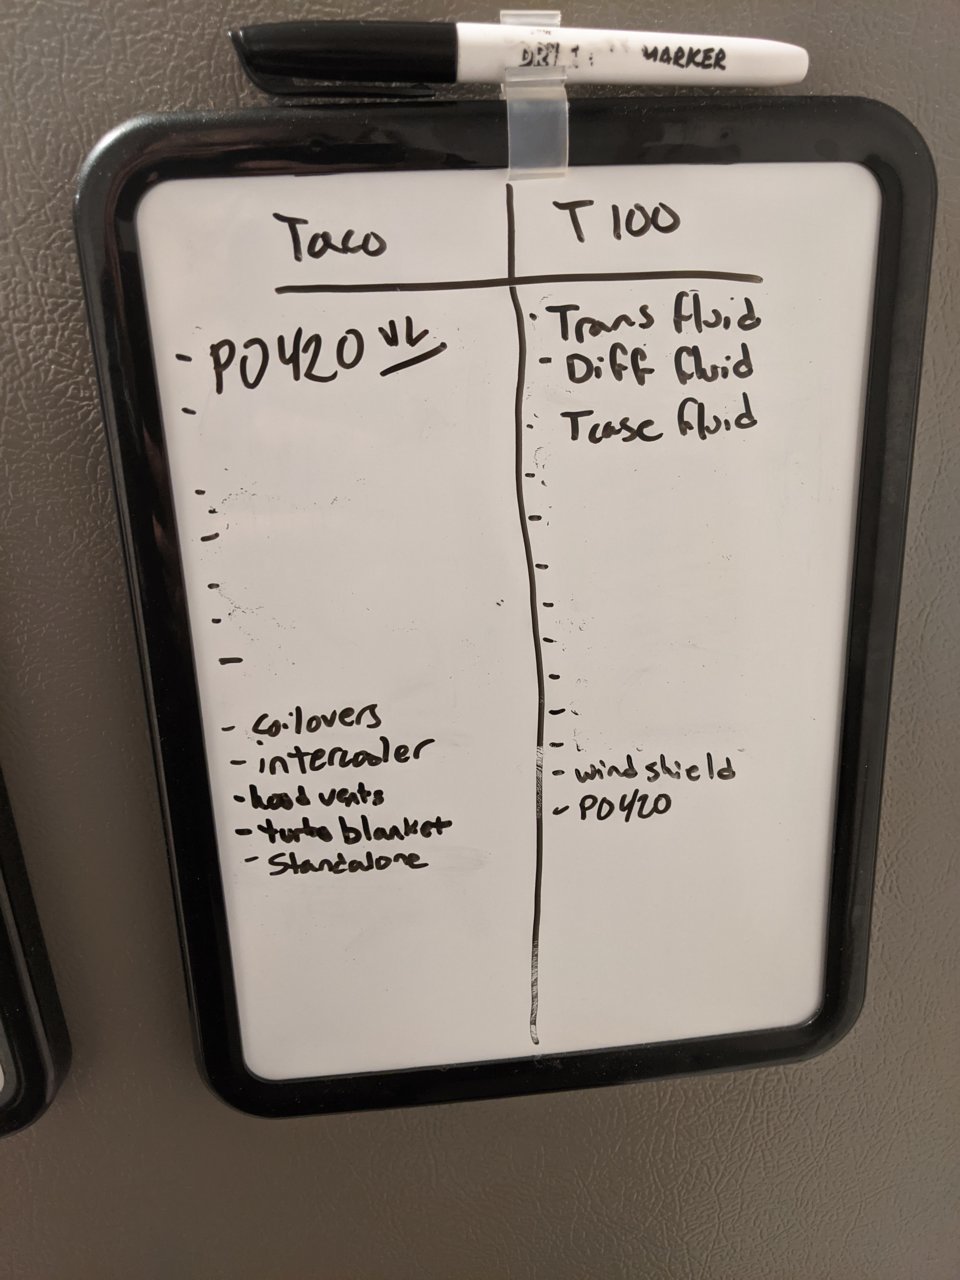 MARKER
Taco
T100
- P0420
-
- coilovers
- intercooler
- hood vents
- turbo blanket
- Standalone
- Trans fluid
- Diff fluid
- Tcase fluid
- windshield
- P0420